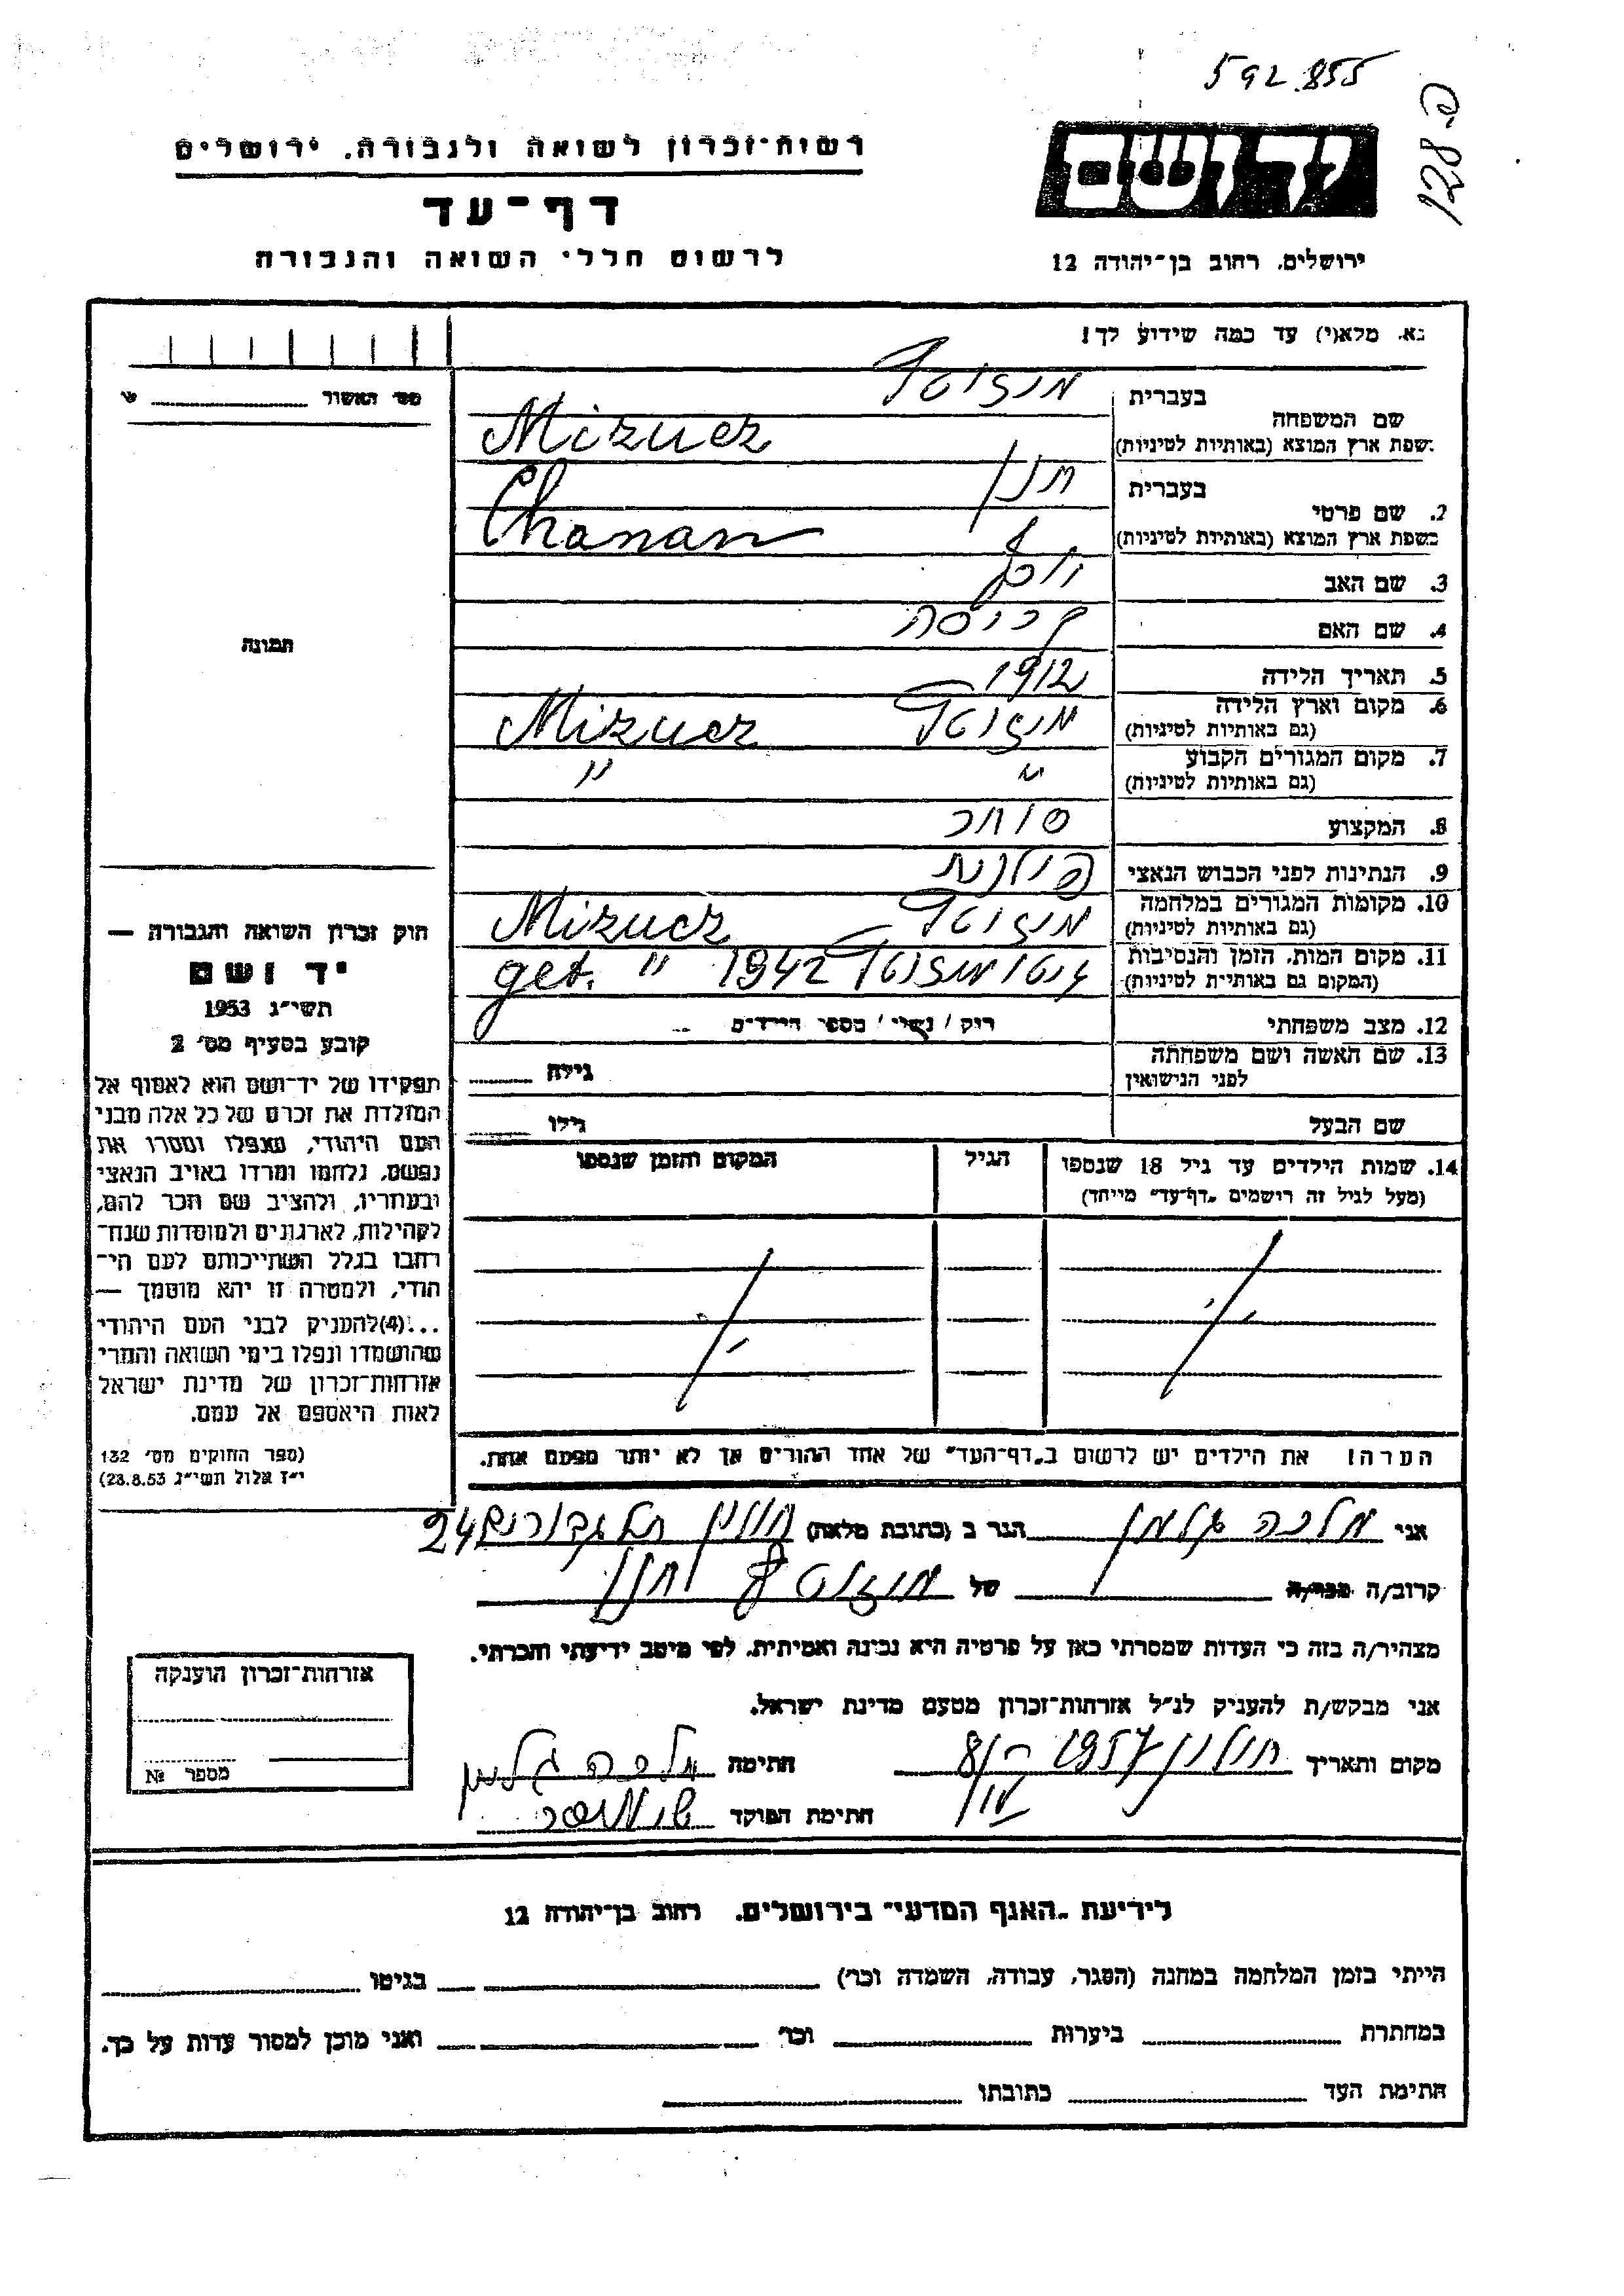 592.855
128 פ.
רשות-זכרון לשואה ולגבורה, ירושלים
דף-עד
לרשום חללי השואה והגבורה
יד ושם
ירושלים, רחוב בן-יהודה 12
נא. מלא(י) עד כמה שידוע לך!
מס׳ האשור
שם המשפחה
בעברית
מיזוטש
שפת ארץ המוצא (באותיות לטיניות)
Mizucz
2. שם פרטי
בעברית
חנן
בשפת ארץ המוצא (באותיות לטיניות)
Chanan
3. שם האב
יוסף
4. שם האם
5. תאריך הלידה
1912
6. מקום וארץ הלידה
(גם באותיות לטיניות)
מיזוטש Mizucz
7. מקום המגורים הקבוע
(גם באותיות לטיניות)
" "
8. המקצוע
סוחר
9. הנתינות לפני הכבוש הנאצי
פולנית
10. מקומות המגורים במלחמה
(גם באותיות לטיניות)
מיזוטש Mizucz
11. מקום המות, הזמן והנסיבות
(המקום גם באותיות לטיניות)
גיטו מיזוטש 1942 " get.
12. מצב משפחתי
רוק / נשוי / מספר הילדים
13. שם האשה ושם משפחתה
לפני הנישואין
גילה
שם הבעל
גילו
14. שמות הילדים עד גיל 18 שנספו
(מעל לגיל זה רושמים "דף-עד" מייחד)
הגיל
המקום והזמן שנספו
הערה! את הילדים יש לרשום ב"דף-העד" של אחד ההורים אך לא יותר מפעם אחת.
תמונה
חוק זכרון השואה והגבורה —
יד ושם
תשי"ג 1953
קובע בסעיף מס׳ 2
תפקידו של יד-ושם הוא לאסוף אל
המולדת את זכרם של כל אלה מבני
העם היהודי, שנפלו ומסרו את
נפשם, נלחמו ומרדו באויב הנאצי
ובעוזריו, ולהציב שם וזכר להם,
לקהילות, לארגונים ולמוסדות שנח-
רבו בגלל השתייכותם לעם הי-
הודי, ולמטרה זו יהא מוסמך —
...(4)להעניק לבני העם היהודי
שהושמדו ונפלו בימי השואה והמרי
אזרחות-זכרון של מדינת ישראל
לאות היאספם אל עמם.
(ספר החוקים מס׳ 132
י"ז אלול תשי"ג 28.8.53)
אני מלכה גלמן הגר ב (כתובת מלאה) חולון תל גבורים 24
קרוב/ה מכר/ה של מיזוטש חנן
מצהיר/ה בזה כי העדות שמסרתי כאן על פרטיה היא נכונה ואמיתית, לפי מיטב ידיעתי והכרתי.
אני מבקש/ת להעניק לנ"ל אזרחות-זכרון מטעם מדינת ישראל.
מקום ותאריך חולון 1957 חתימה מלכה גלמן
חתימת הפוקד
אזרחות-זכרון הוענקה
מספר №
לידיעת "האגף המדעי" בירושלים, רחוב בן-יהודה 12
הייתי בזמן המלחמה במחנה (הסגר, עבודה, השמדה וכו׳) בגיטו
במחתרת ביערות וכו׳ ואני מוכן למסור עדות על כך.
חתימת העד כתובתו